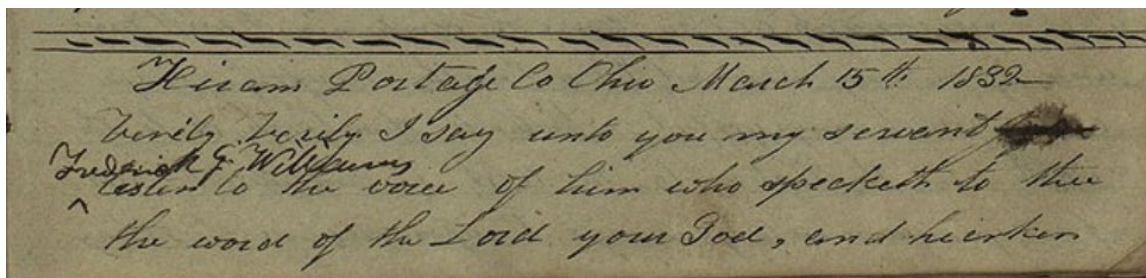 Hiram Portage Co Ohio March 15th 1832
Verily Verily I say unto you my servant
Frederick G. Williams
listen to the voice of him who speaketh to thee
the word of the Lord your God, and hearken